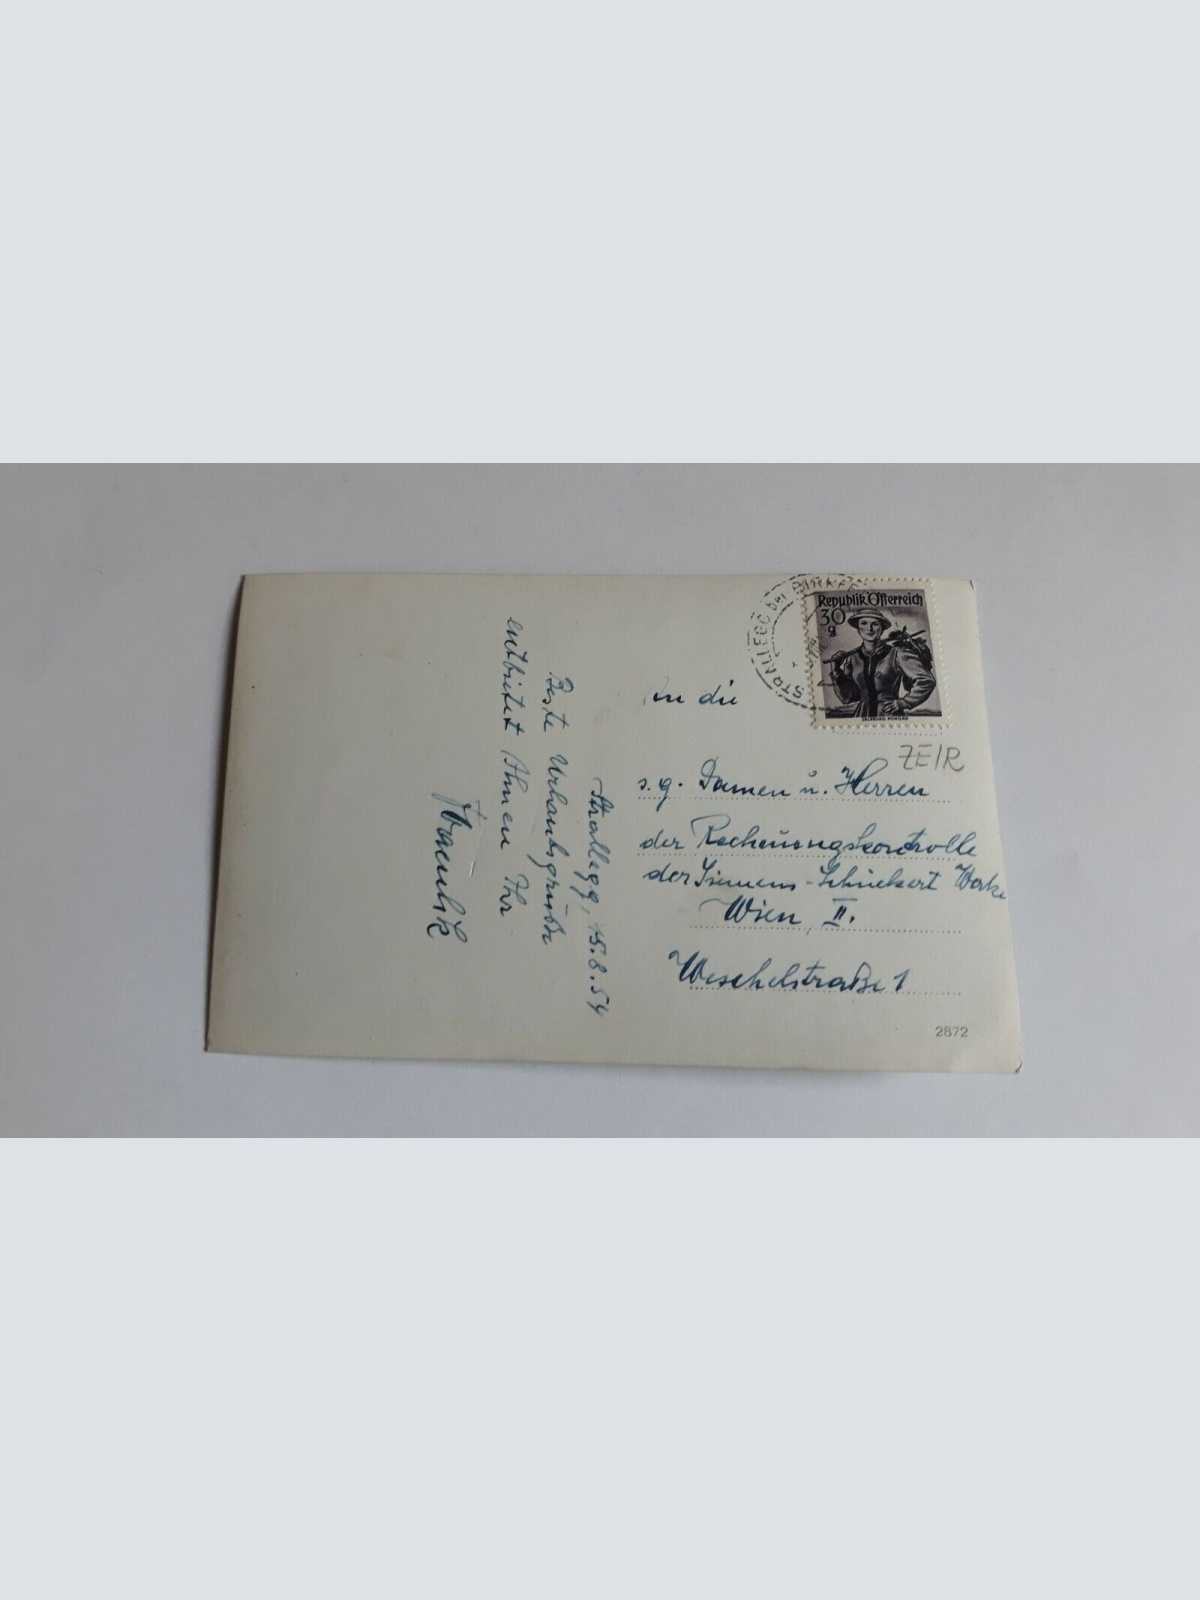 Strallegg, 15.8.54
Beste Urlaubsgrüße
entbietet Ihnen Ihr
STRALLEGG bei BIRKF
Republik Österreich
30
g
SALZBURG PONGAU
An die
ZE/R
s. g. Damen u. Herren
der Rechnungskontrolle
der Siemens-Schuckert Werke
Wien, II.
Weschelstraße 1
2872